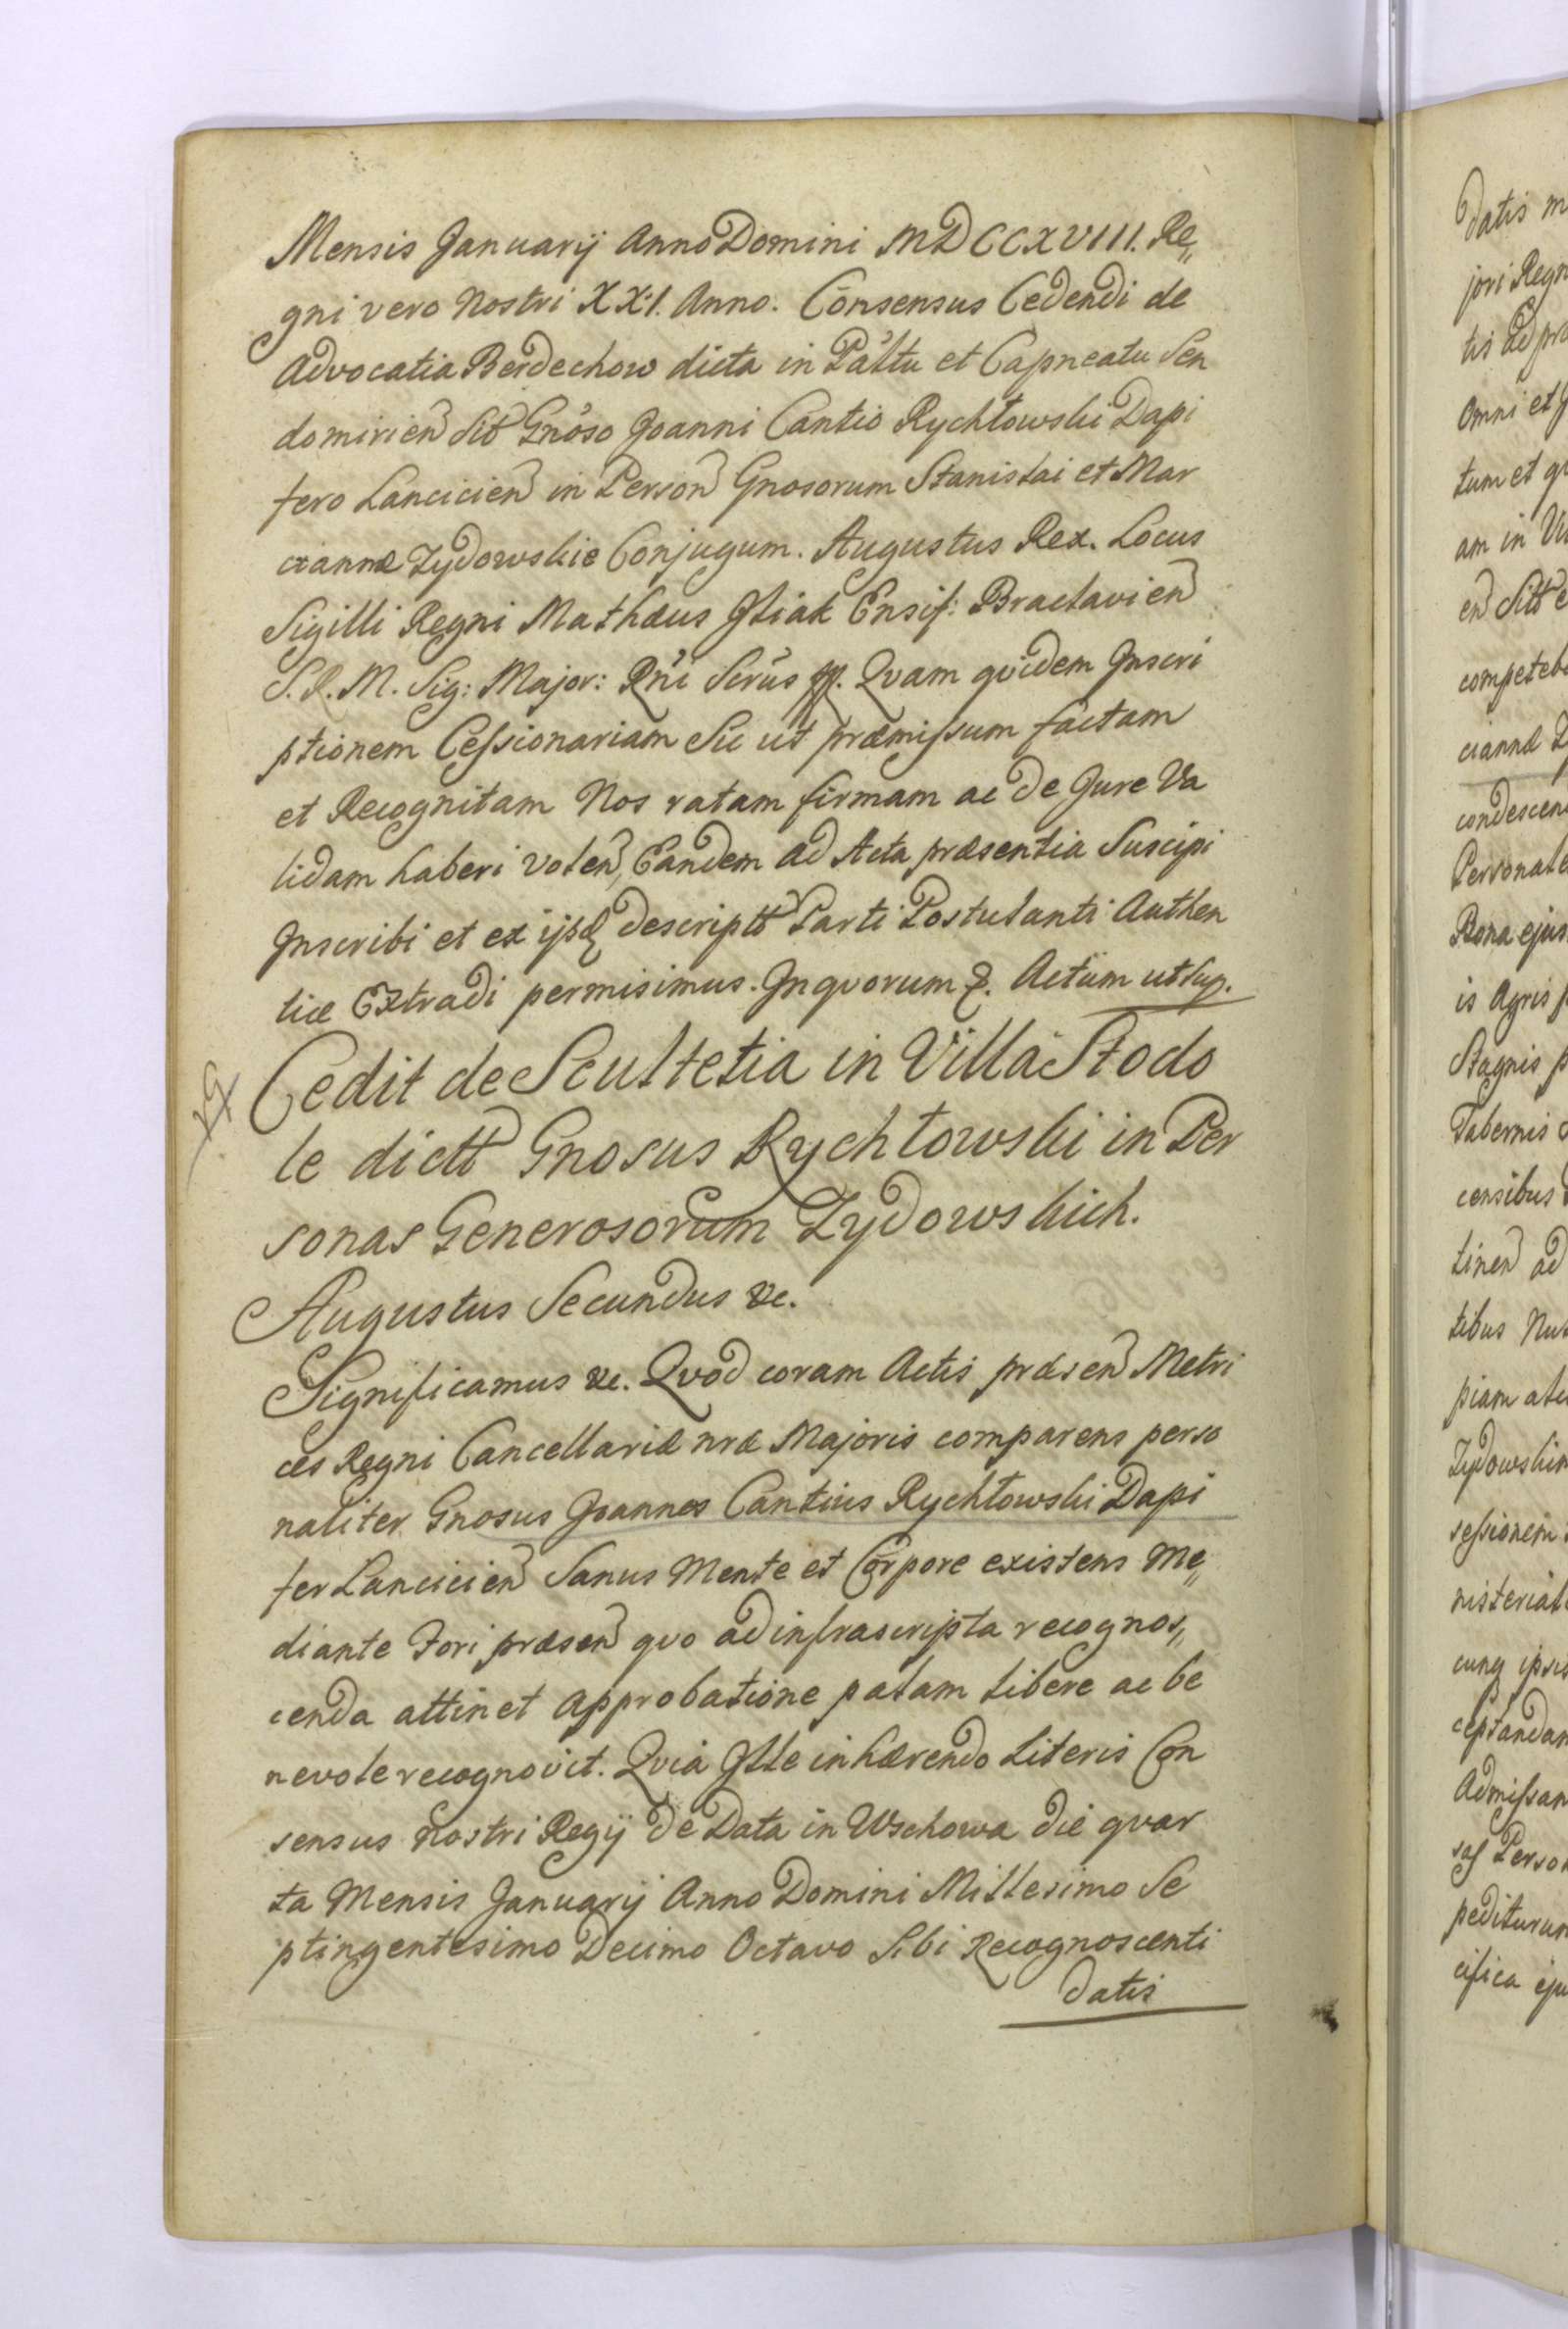 Mensis Januarij Anno Domini MDCCXVIII. Re„
gni vero Nostri XXI. Anno. Consensus Cedendi de
Advocatia Berdechow dicta in Pałtu et Capneatu Sen
domirien Sit Gnoso Joanni Cantio Rychłowski Dapi
fero Lancicien in Person Gnosorum Stanislai et Mar
ciannæ Zydowskie Conjugum. Augustus Rex. Locus
Sigilli Regni Mathæus Iliak Ensif: Braclavien
S.R.M. Sig: Major: Rni Scrus. Qvam qvidem Inscri
ptionem Cessionariam Sic ut præmissum factam
et Recognitam Nos ratam firmam ac de Jure Va
lidam haberi volen, Eandem ad Acta præsentia Suscipi
Inscribi et ex ijsd descriptt Parti Postulanti Authen
tice Extradi permisimus. In qvorum &. Actum ut sup.
Cedit de Scultetia in Villa Stodo
le dictt Gnosus Rychłowski in Per
sonas Generosorum Zydowskich.
Augustus Secundus &c.
Significamus &c. Qvod coram Actis præsen Metri
ces Regni Cancellariæ nræ Majoris comparens perso
naliter Gnosus Joannes Cantius Rychłowski Dapi
fer Lancicien Sanus Mente et Corpore existens Me„
diante Fori præsen qvo ad infrascripta recognos„
cenda attinet approbatione palam libere ac be
nevole recognovit. Qvia Ille inhærendo Literis Con
sensus Nostri Regij de Data in Wschowa die qvar
ta Mensis Januarij Anno Domini Millesimo Se
ptingentesimo Decimo Octavo Sibi Recognoscenti
datis
datis
jori Regn
tis ad
omni et
tum et
am in
en Sitt
competeb
ciannæ
condescen
Personale
Bona ejus
is Agris
Stagnis
Tabernis
censibus
tinen ad
tibus
piam
Zydowskim
sessionem
nisterial
cunq ipsis
ceptandam
Admissam
Person
peditur
cifica